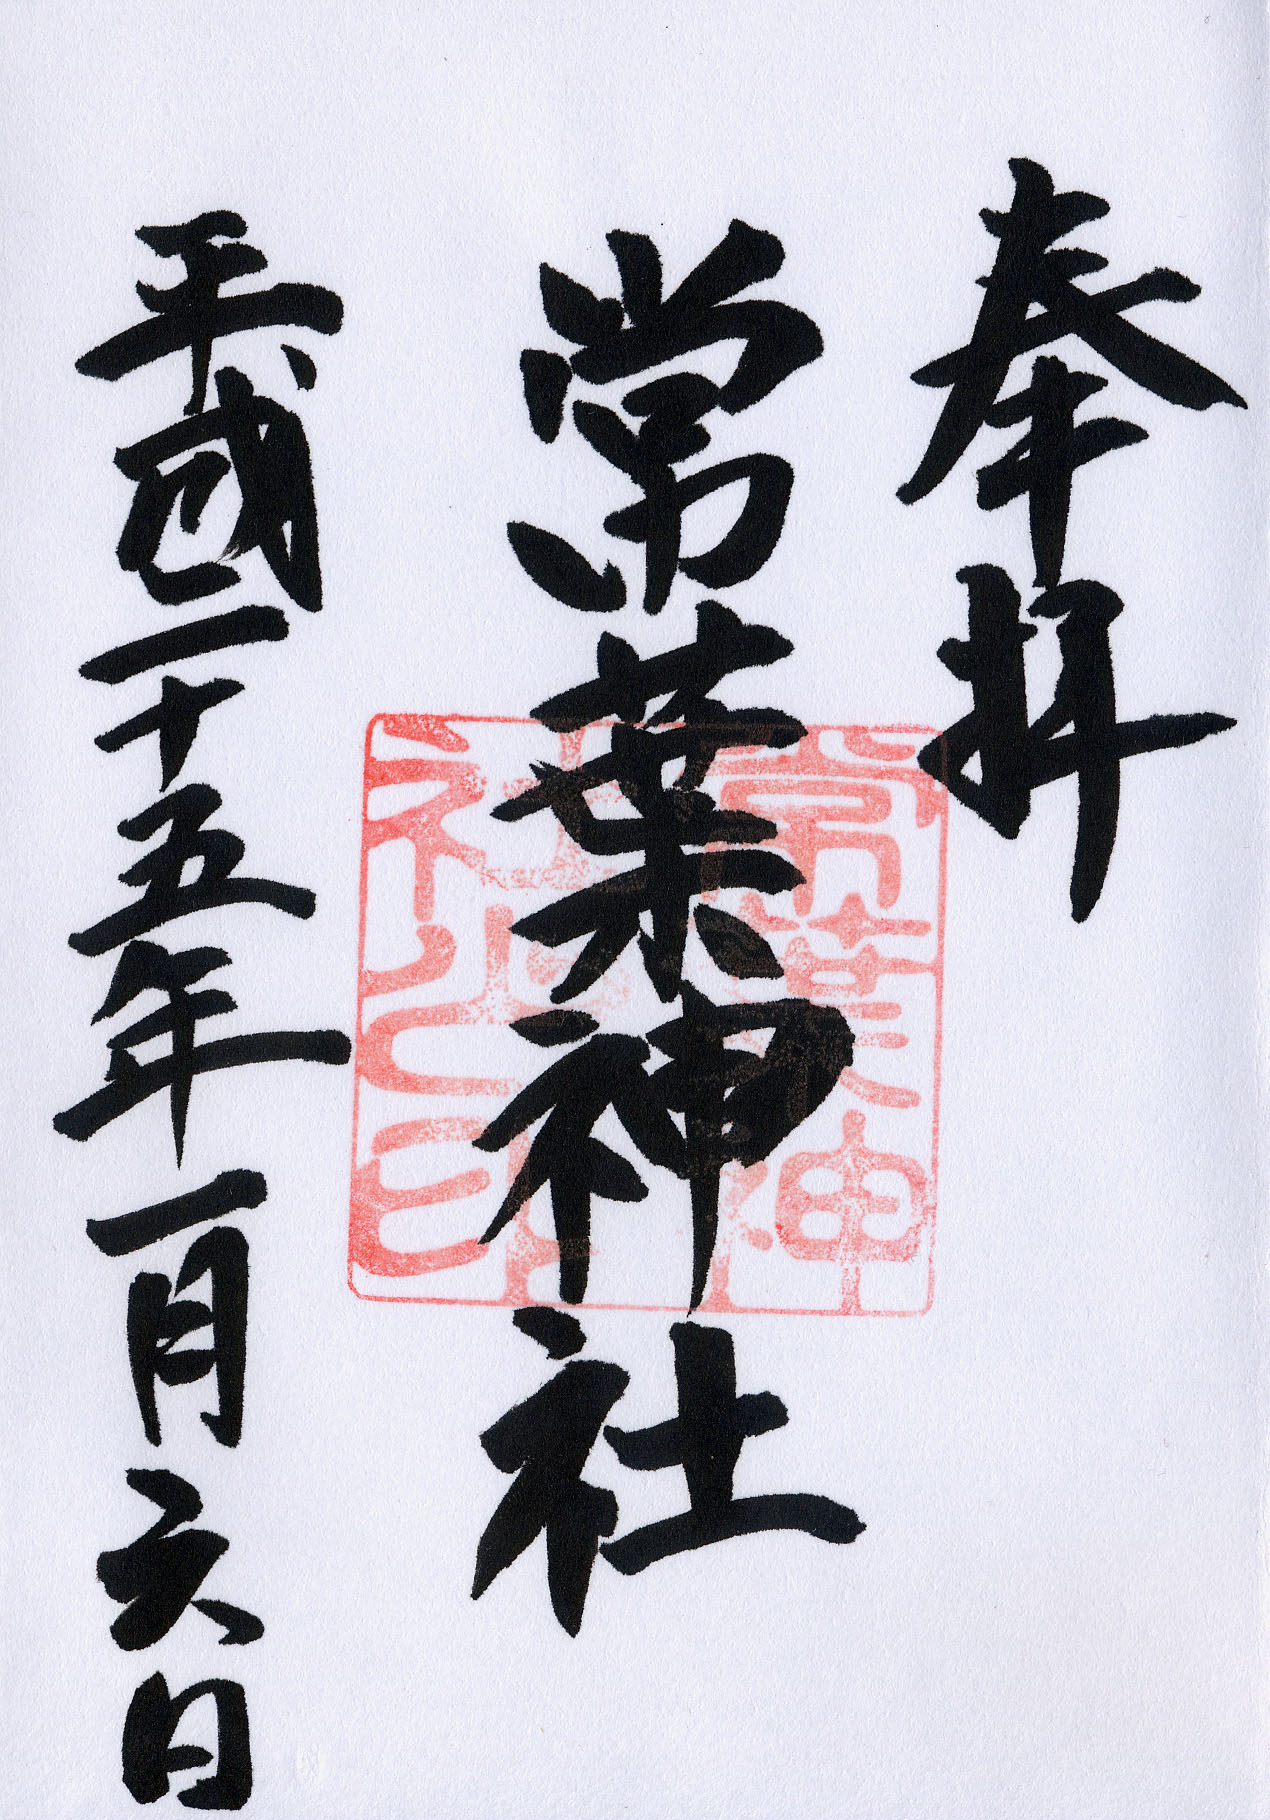 奉拝
常葉神社
平成二十五年一月六日
常葉神
社之印